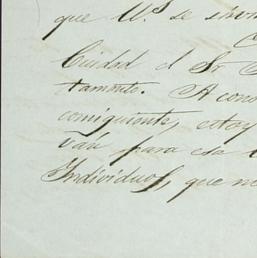 que U.S se sirv
Ciudad el Sr
tamente. A con
comiguiente, estoy
ván para esa
Individuos, que no